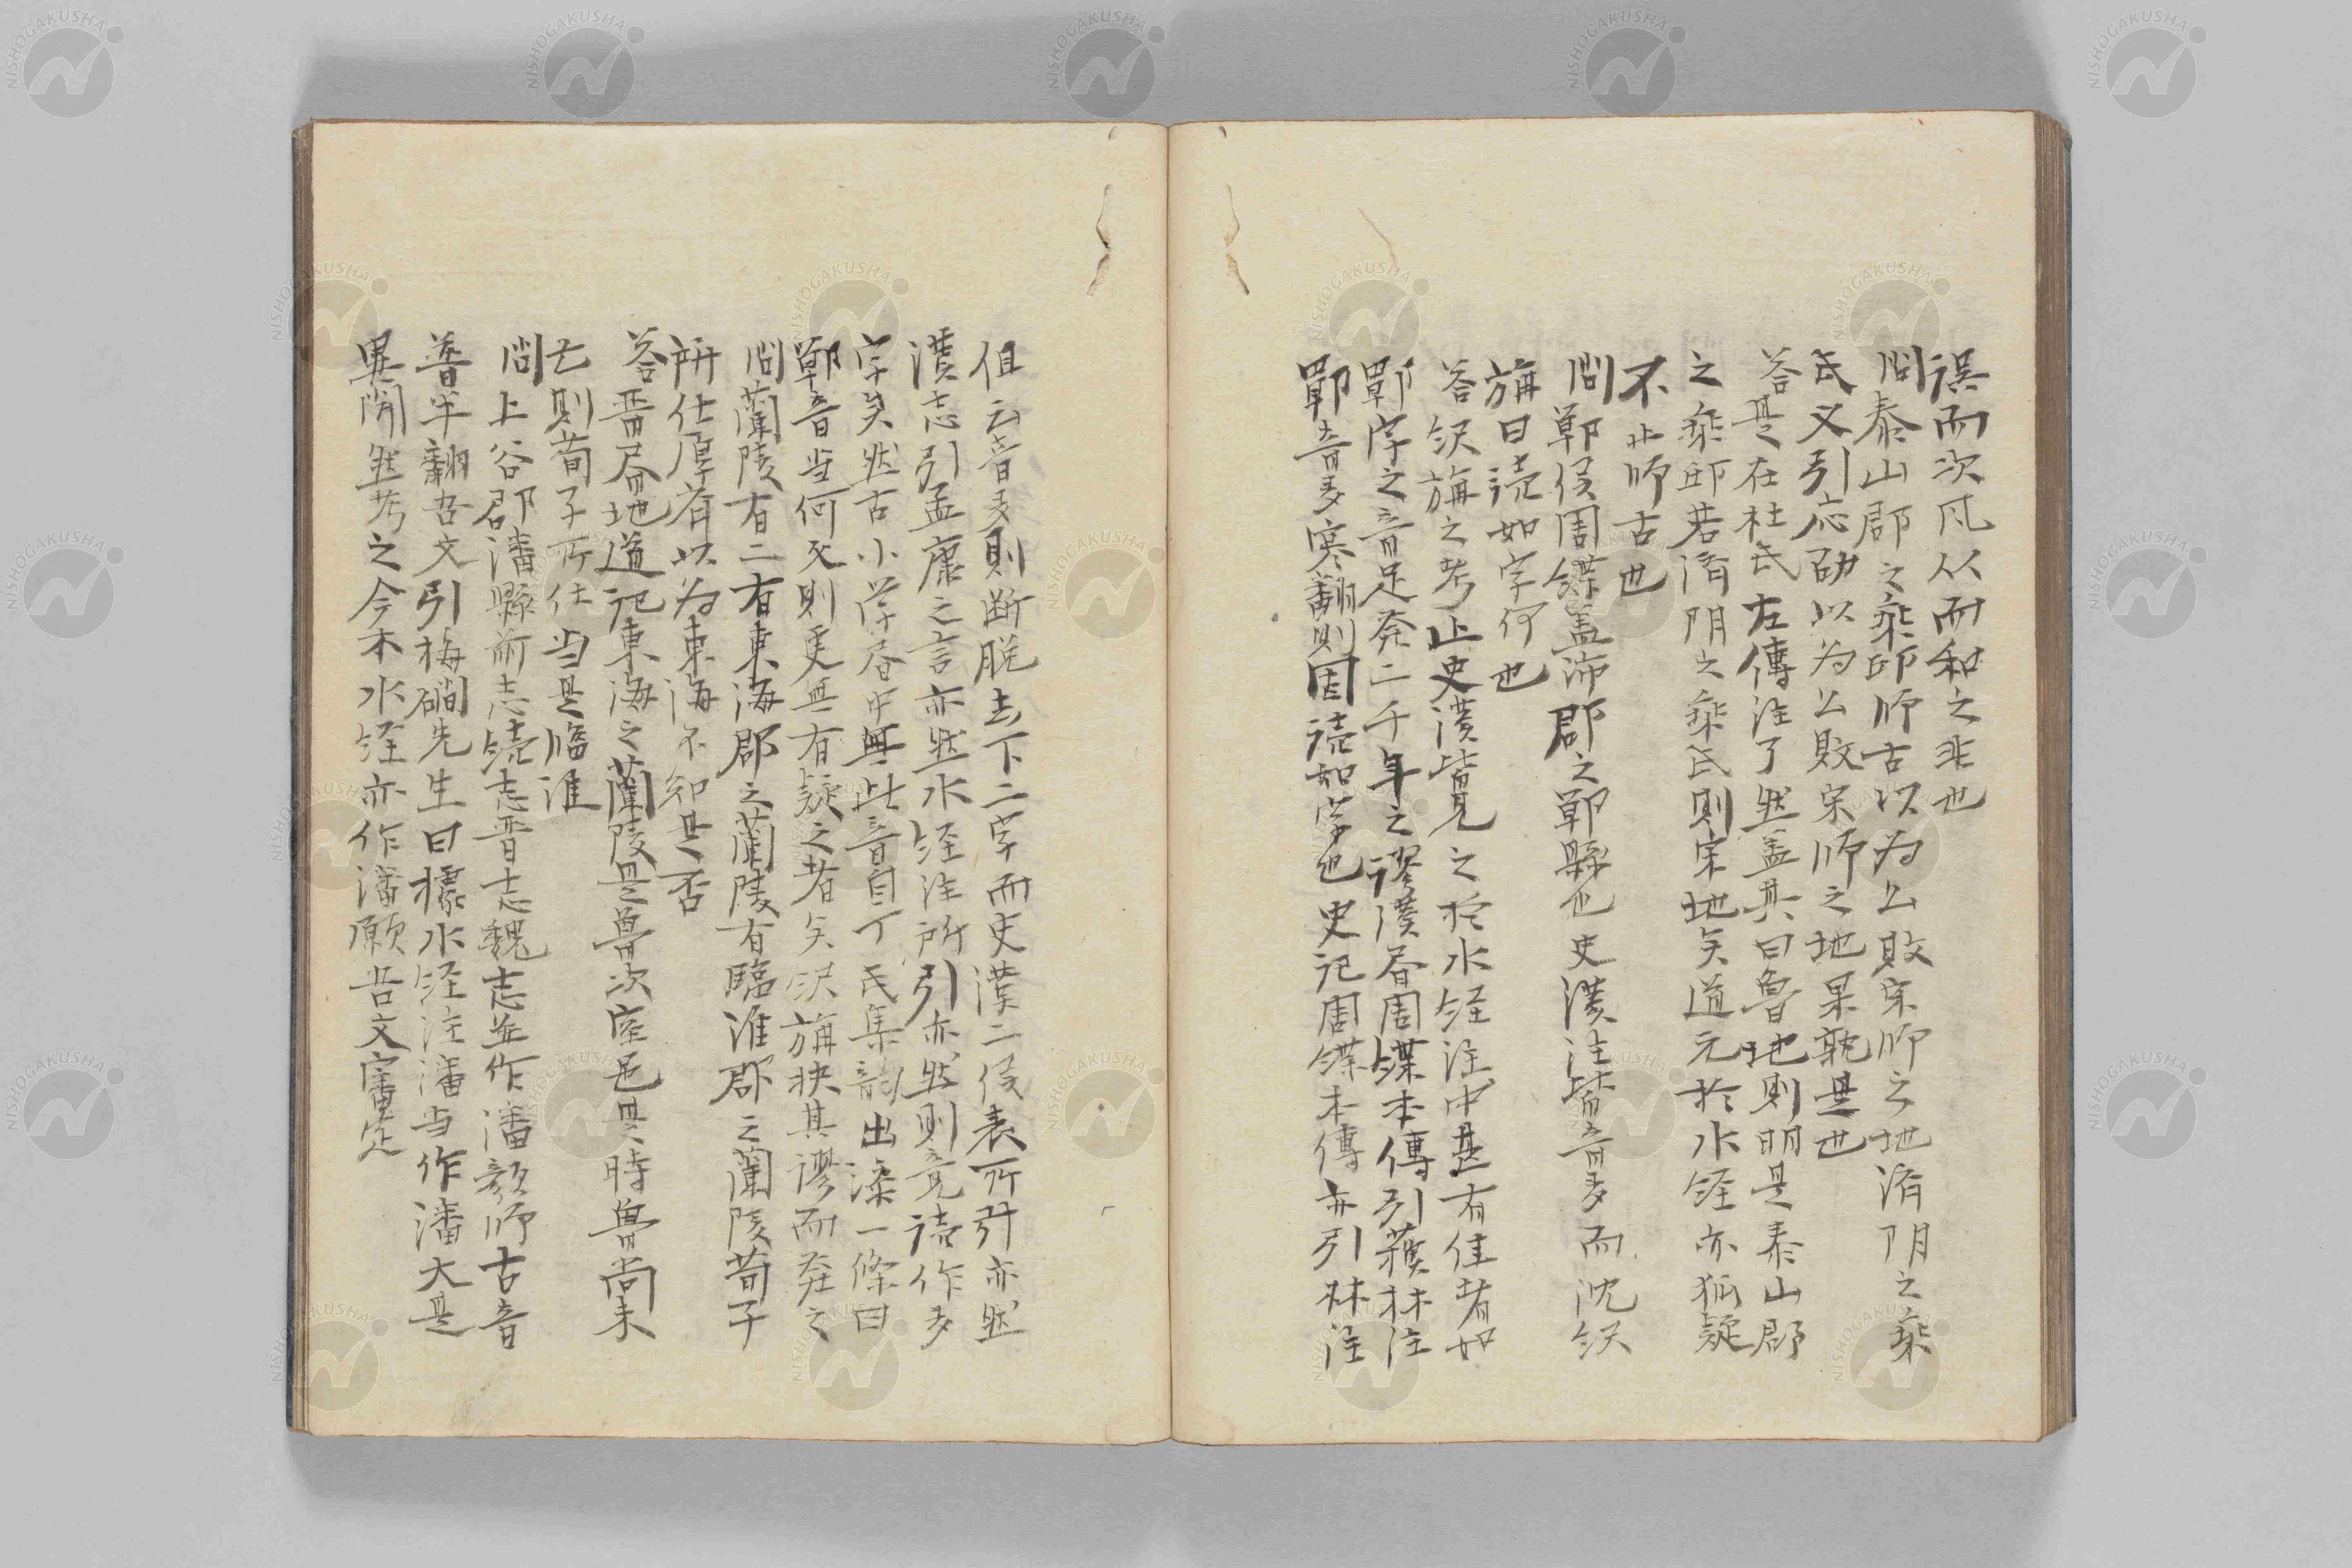 誤而次凡从而和之非也
問泰山郡之乘邱师古以为公敗宋师之地济阴之乘
氏又引应劭以为公敗宋师之地果孰是也
答是在杜氏左傳注了然盖其曰魯地则明是泰山郡
之乘邱若济阴之乘氏则宋地矣道元於水経亦狐疑
不止师古也
問鄲侯周緤盖沛郡之鄲縣也史漢注皆音多而沈绎
旃曰读如字何也
答绎旃之考止史漢皆見之於水経注中甚有佳者如
鄲字之音足発二千年之謬漢書周緤本傳引蘇林注
鄲音多寒翻则固读如字也史记周緤本傳亦引林注
但云音多則断脱去下二字而史漢二侯表所引亦然
漢志引孟康之言亦然水経注所引亦然则竟读作多
字矣然古小学書中無此音自丁氏集韵出溱一條曰
鄲音当何反則更無有疑之者矣绎旃抉其謬而発之
問蘭陵有二有東海郡之蘭陵有臨淮郡之蘭陵荀子
所仕厚斋以为東海不知是否
答晋書地道记東海之蘭陵是魯次室邑其時魯尚未
亡则荀子所仕当是臨淮
問上谷郡潘縣前志续志晋志魏志並作潘顏师古音
普半翻吾丈引梅磵先生曰據水経注潘当作潘大是
異聞然考之今本水経亦作潘願吾丈審定